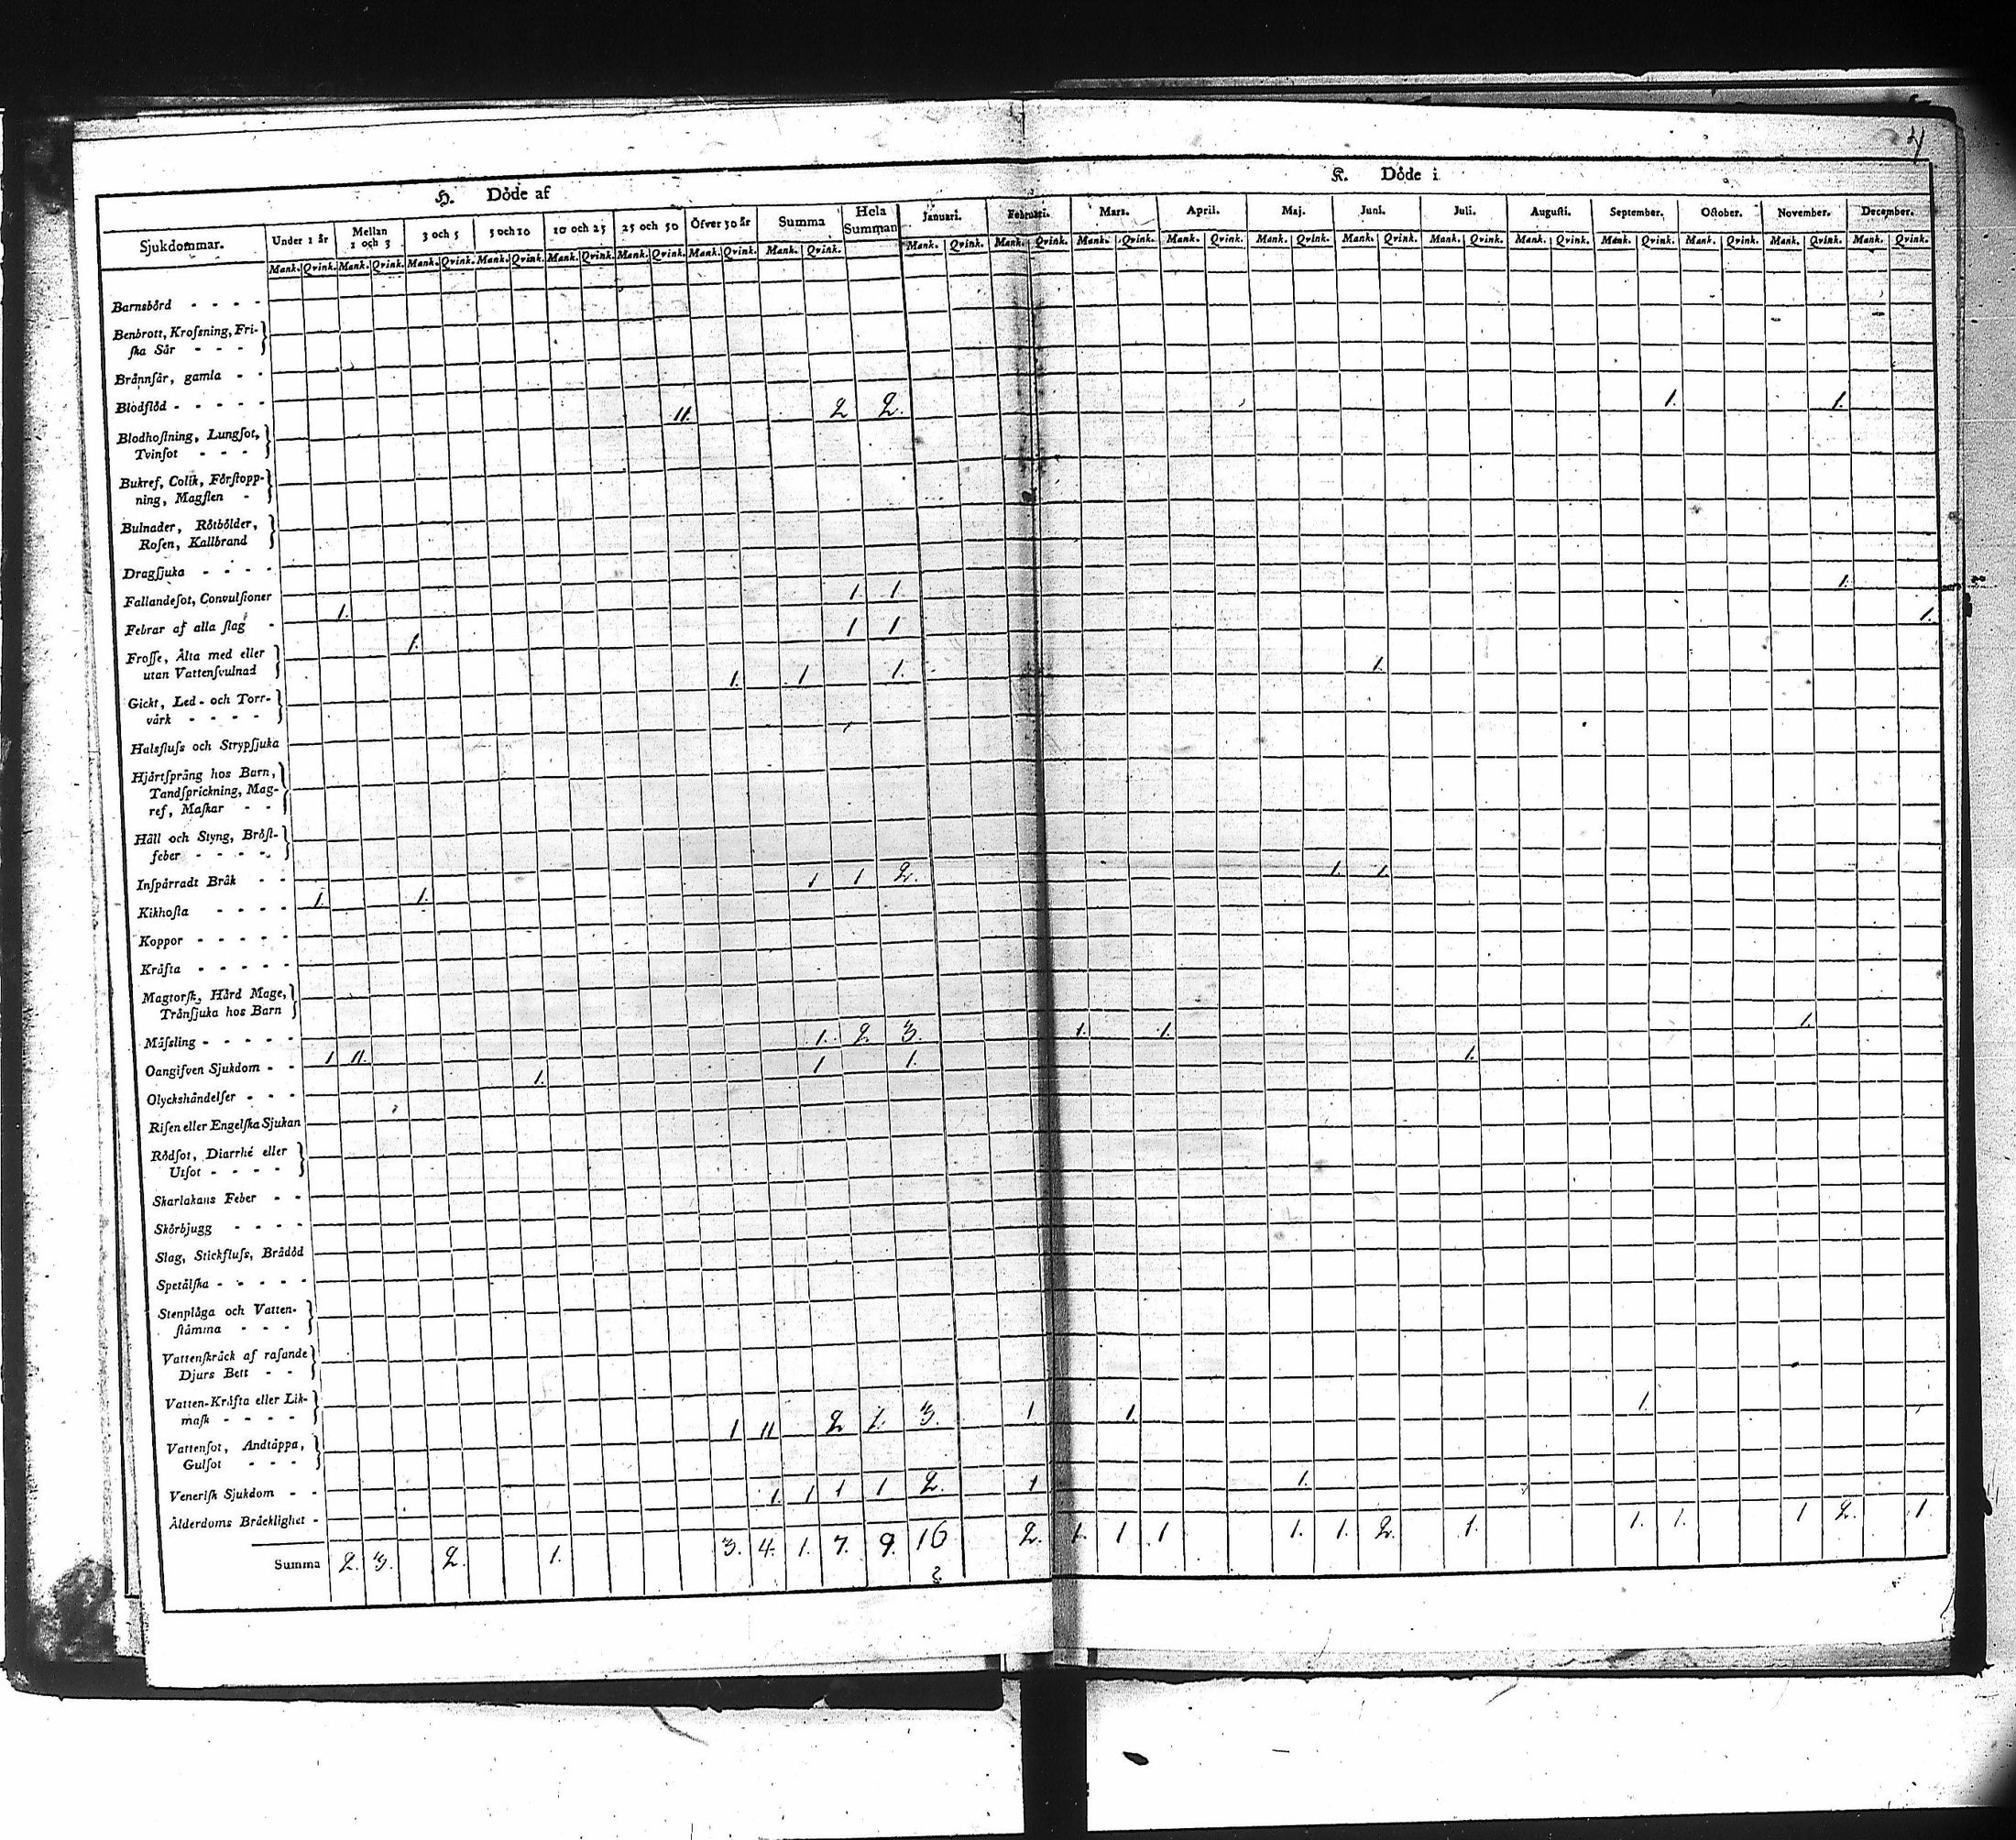 4
H. Döde af
K. Döde i
Sjukdommar. Under 1 år Mellan 1 och 3 3 och 5 5 och 10 10 och 25 25 och 50 Öfver 50 år Summa Hela Summan Januari. Februari. Mars. April. Maj. Juni. Juli. Augusti. September. October. November. December.
Mank. Qvink. Mank. Qvink. Mank. Qvink. Mank. Qvink. Mank. Qvink. Mank. Qvink. Mank. Qvink. Mank. Qvink. Mank. Qvink. Mank. Qvink. Mank. Qvink. Mank. Qvink. Mank. Qvink. Mank. Qvink. Mank. Qvink. Mank. Qvink. Mank. Qvink. Mank. Qvink. Mank. Qvink. Mank. Qvink.
Barnsbörd - - - -
Benbrott, Krosſning, Fri-
ſka Sår - - -
Brännſår, gamla - -
Blodflöd - - - - - 11. 2 2. 1. 1.
Blodhoſtning, Lungſot,
Tvinſot - - -
Bukref, Colik, Förſtopp-
ning, Magſlen -
Bulnader, Rötbölder,
Roſen, Kallbrand
Dragſjuka - - - -
Fallandeſot, Convulſioner 1. 1 1 1.
Febrar af alla ſlag - 1. 1 1 1.
Froſſe, Älta med eller
utan Vattenſvulnad 1. 1 1. 1.
Gickt, Led- och Torr-
värk - - - -
Halsfluſs och Strypſjuka
Hjärtſpräng hos Barn,
Tandſprickning, Mag-
ref, Maſkar - -
Håll och Styng, Bröſt-
feber - - - -
Inſpärradt Bråk - - 1. 1. 1 1 2. 1. 1.
Kikhoſta - - - -
Koppor - - - - -
Kräfta - - - - -
Magtorſk, Hård Mage,
Tränſjuka hos Barn
Mäſsling - - - - - 1 11. 1. 2 3. 1. 1. 1.
Oangifven Sjukdom - - 1. 1 1. 1.
Olyckshändelſer - - -
Riſen eller Engelſka Sjukan
Rödſot, Diarrhé eller
Utſot - - - -
Skarlakans Feber - -
Skörbjugg - - - -
Slag, Stickfluſs, Brådöd
Spetälſka - - - - -
Stenplåga och Vatten-
ſtämma - - -
Vattenſkräck af raſande
Djurs Bett - -
Vatten-Kräfta eller Lik-
maſk - - - - 1 11 2 1. 3. 1 1. 1.
Vattenſot, Andtäppa,
Gulſot - - -
Veneriſk Sjukdom - - 1. 1 1 1 2. 1 1.
Ålderdoms Bräcklighet -
Summa 2. 3. 2. 1. 3. 4. 1. 7. 9. 16 2. 1. 1 1 1. 1. 2. 1. 1. 1. 1 2. 1.